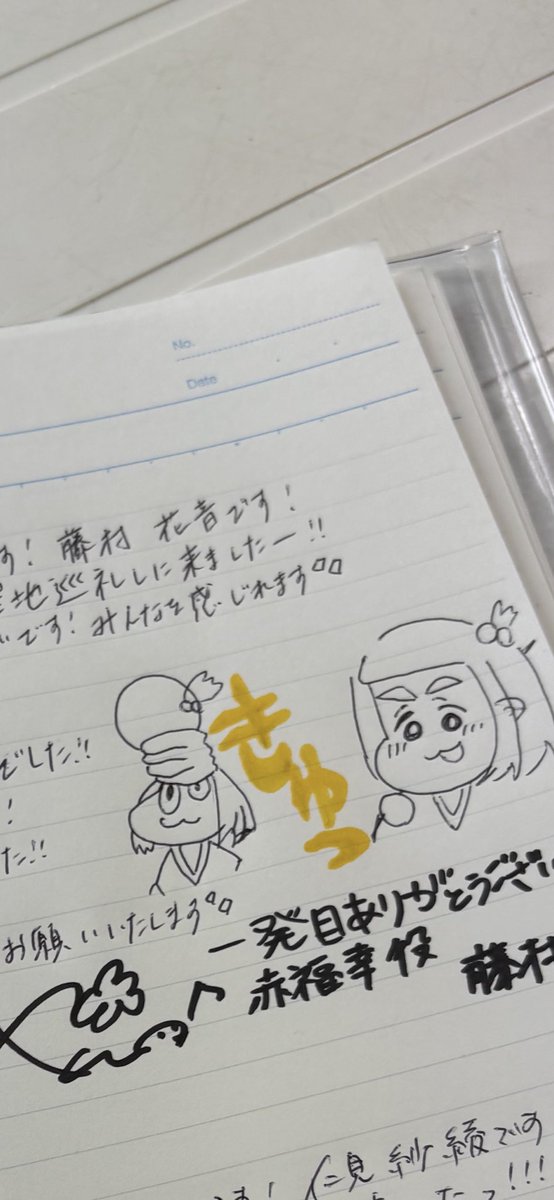 No.
Date
す! 藤村 花音です!
地巡礼しに来ましたー!!
です! みんなを感じれます
でした!!
!
た!!
きゅっ
お願いいたします
一発目ありがとうござい
赤福幸役 藤村
仁見 紗綾です
!!!